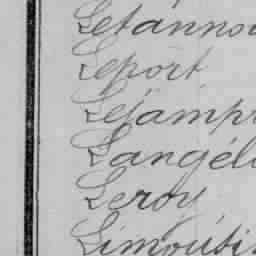 Létanno
Leport
Lejamp
Langél
Leroy
Limousi